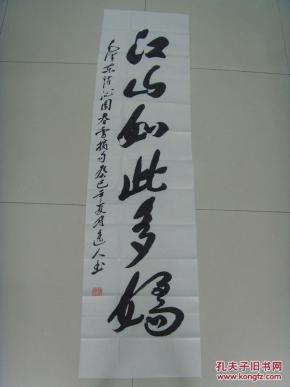 江山如此多娇
毛泽东诗沁园春雪摘句癸巳年夏月逸人书
孔夫子旧书网
www.kongfz.com